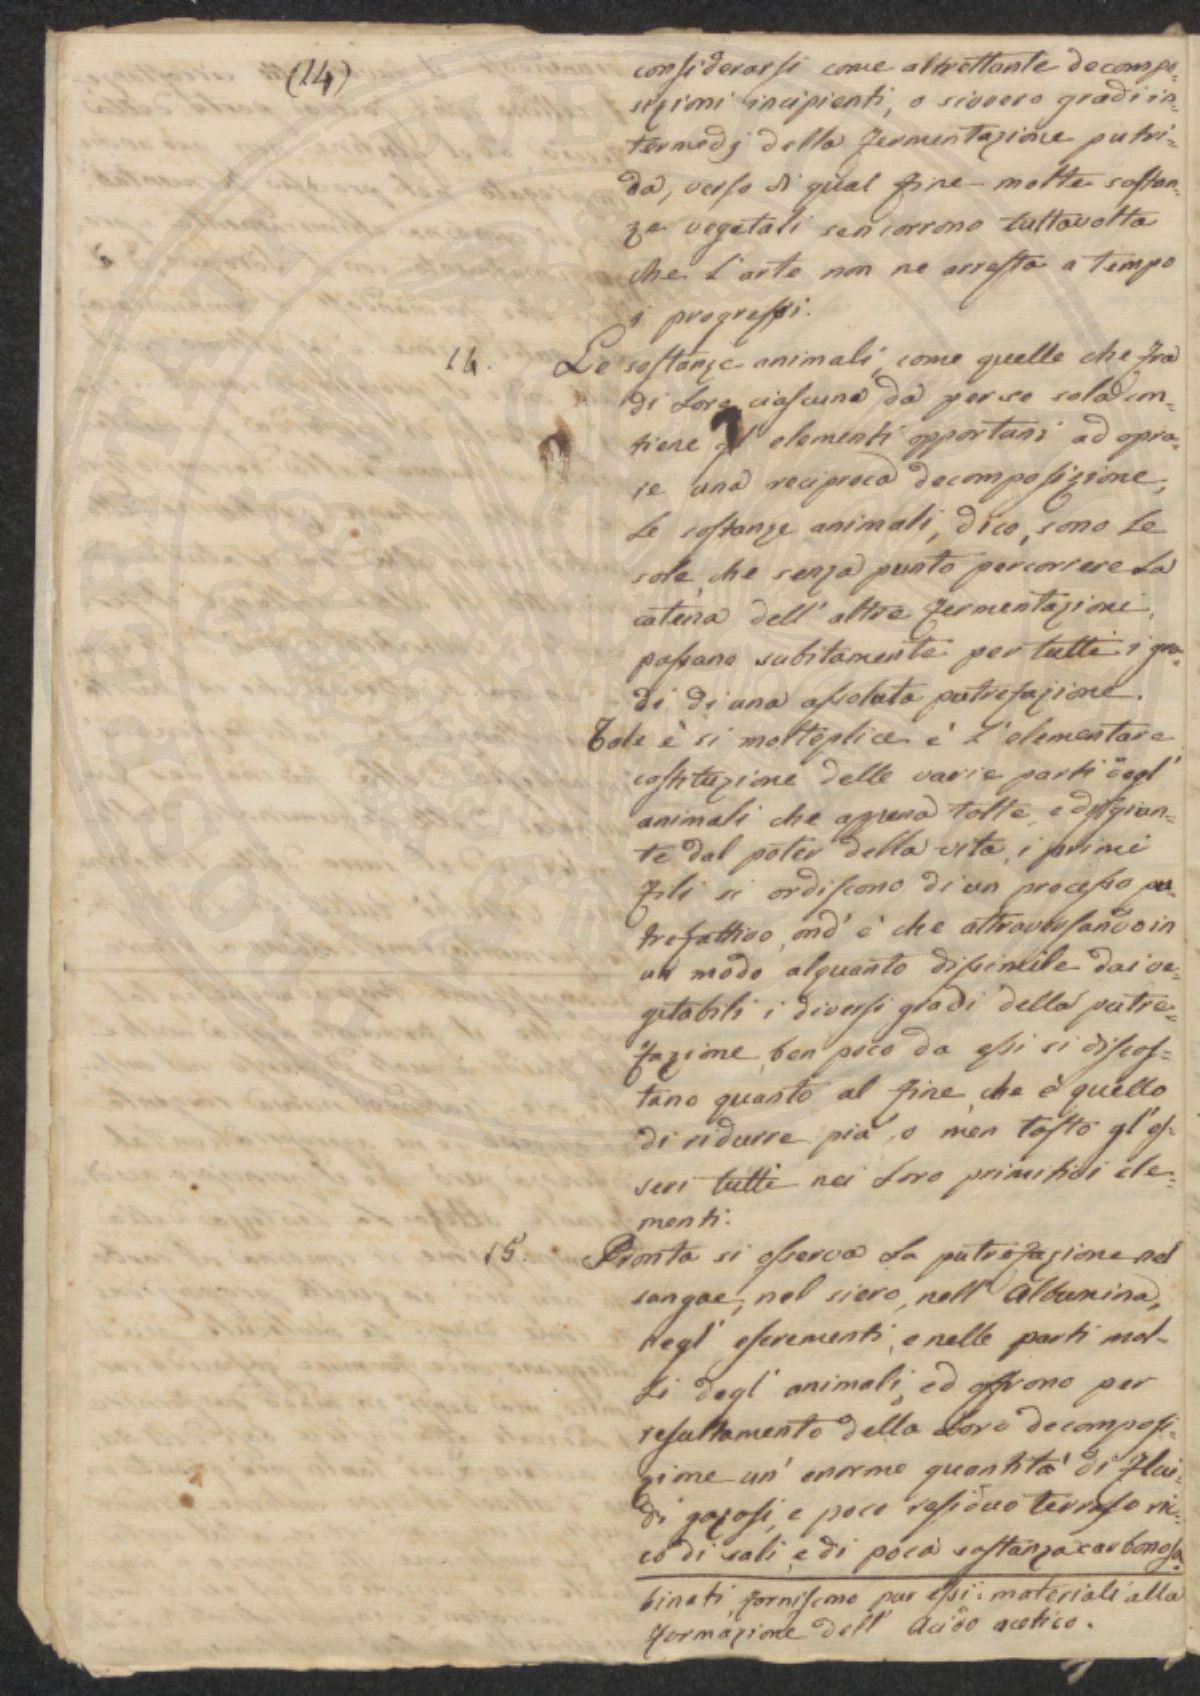 (14)
considerarsi come altrettante decompo=
sizioni incipienti, o sivvero gradi in=
termedj della fermentazione putri=
da, verso il qual fine molte sostan=
ze vegetali sen corrono tuttavolta
che l'arte non ne arresta a tempo
i progressi.
14. Le sostanze animali, come quelle che fra
di loro ciascuna da per se sola con=
tiene gl' elementi opportuni ad opra=
re una reciproca decomposizione,
le sostanze animali, dico, sono le
sole, che senza punto percorrere la
catena dell' altre fermentazioni,
passano subitamente per tutti i gra=
di di una assoluta putrefazione.
Tale è si molteplice è l'elementare
costituzione delle varie parti degl'
animali che appena tolte, e disgiun=
te dal poter della vita, i primi
fili si ordiscono di un processo pu=
trefattivo, ond' è che attraversando in
un modo alquanto dissimile dai ve=
getabili i diversi gradi della putre=
fazione, ben poco da essi si discos=
tano quanto al fine, che è quello
di ridurre più, o men tosto gl'es=
seri tutti nei loro primitivi ele=
menti.
15. Pronta si osserva la putrefazione nel
sangue, nel siero, nell' Albumina,
negl' escrementi, e nelle parti mol=
li degl' animali, ed offrono per
resultamento della loro decomposi=
zione un' enorme quantità di flui=
di gazosi, e poco residuo terroso ric=
co di sali, e di poca sostanza carbonosa.
binati forniscono pur essi i materiali alla
formazione dell' Acido acetico.